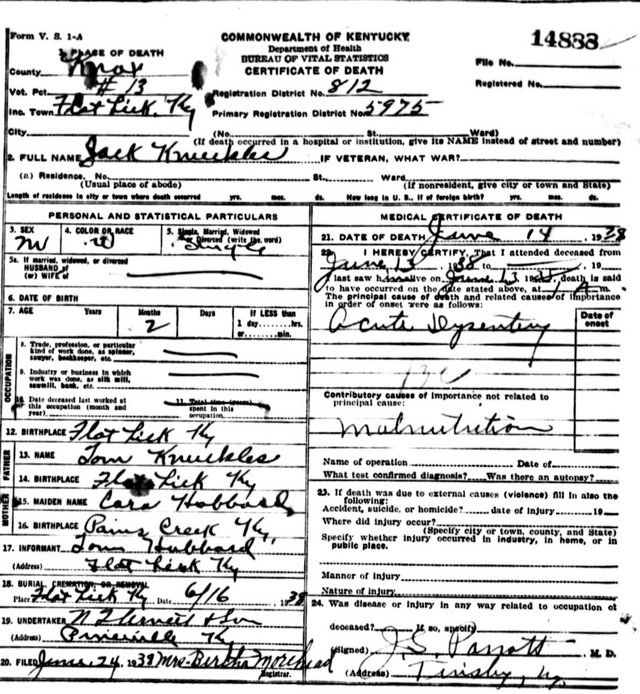 Form V. S. 1-A
COMMONWEALTH OF KENTUCKY
Department of Health
BUREAU OF VITAL STATISTICS
CERTIFICATE OF DEATH
14888
File No.
Registered No.
1. PLACE OF DEATH
County Knox
Vot. Pct. #13
Inc. Town Flat Lick, Ky
Registration District No. 812
Primary Registration District No. 5975
City (No. St. Ward)
(If death occurred in a hospital or institution, give its NAME instead of street and number)
2. FULL NAME Jack Knuckles IF VETERAN, WHAT WAR?
(a) Residence. No. St. Ward
(Usual place of abode) (If nonresident, give city or town and State)
Length of residence in city or town where death occurred yrs. mos. ds. How long in U. S., if of foreign birth? yrs. mos. ds.
PERSONAL AND STATISTICAL PARTICULARS
3. SEX M
4. COLOR OR RACE W
5. Single, Married, Widowed or Divorced (write the word) Single
5a. If married, widowed, or divorced
HUSBAND of
(or) WIFE of
6. DATE OF BIRTH
7. AGE Years Months Days If LESS than
2 1 day, hrs.
or min.
OCCUPATION
8. Trade, profession, or particular
kind of work done, as spinner,
sawyer, bookkeeper, etc.
9. Industry or business in which
work was done, as silk mill,
sawmill, bank, etc.
10. Date deceased last worked at
this occupation (month and
year)
11. Total time (years)
spent in this
occupation.
12. BIRTHPLACE Flat Lick Ky
FATHER
13. NAME Tom Knuckles
14. BIRTHPLACE Flat Lick Ky
MOTHER
15. MAIDEN NAME Cara Hobbard
16. BIRTHPLACE Creek Ky.
17. INFORMANT Tom Hubbard
(Address) Flat Lick Ky
18. BURIAL, CREMATION, OR REMOVAL
Place Flat Lick Ky Date 6/16 38
19. UNDERTAKER & Son
(Address) Pineville Ky
20. FILED June 24, 1938 Mrs. Bertha Morehead
Registrar.
MEDICAL CERTIFICATE OF DEATH
21. DATE OF DEATH June 14 1938
22. I HEREBY CERTIFY, That I attended deceased from
June 13 1938 to 19
I last saw him alive on June 13 1938, death is said
to have occurred on the date stated above, at A m.
The principal cause of death and related causes of importance
in order of onset were as follows:
Date of
onset
Acute Dysentery
13c
Contributory causes of importance not related to
principal cause:
Malnutrition
Name of operation Date of
What test confirmed diagnosis? Was there an autopsy?
23. If death was due to external causes (violence) fill in also the
following:
Accident, suicide, or homicide? date of injury 19
Where did injury occur?
(Specify city or town, county, and State)
Specify whether injury occurred in industry, in home, or in
public place.
Manner of injury
Nature of injury
24. Was disease or injury in any way related to occupation of
deceased? If so, specify
(Signed) J. S. Parrott M. D.
(Address) Tinsley, Ky.